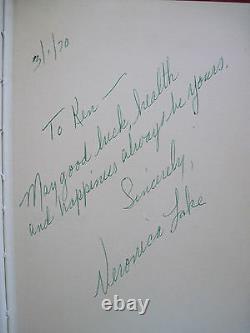 3/1/70
To Ken —
May good luck, health
and happiness always be yours.
Sincerely,
Veronica Lake
ebay